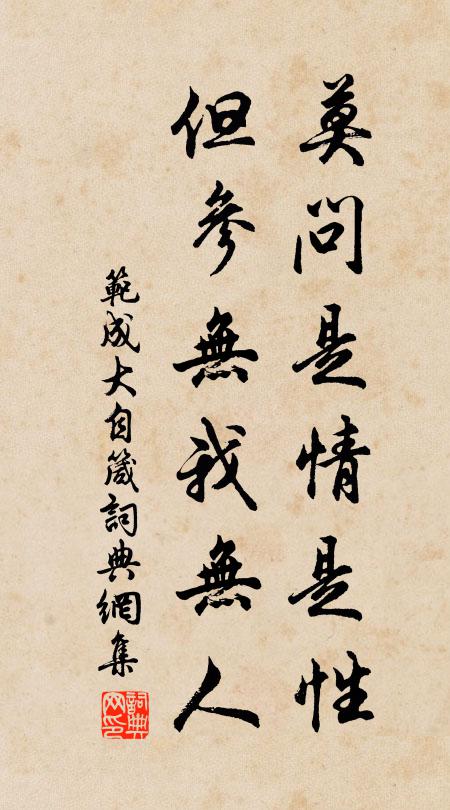 莫問是情是性
但參無我無人
範成大自箴詞典網集
詞典网印